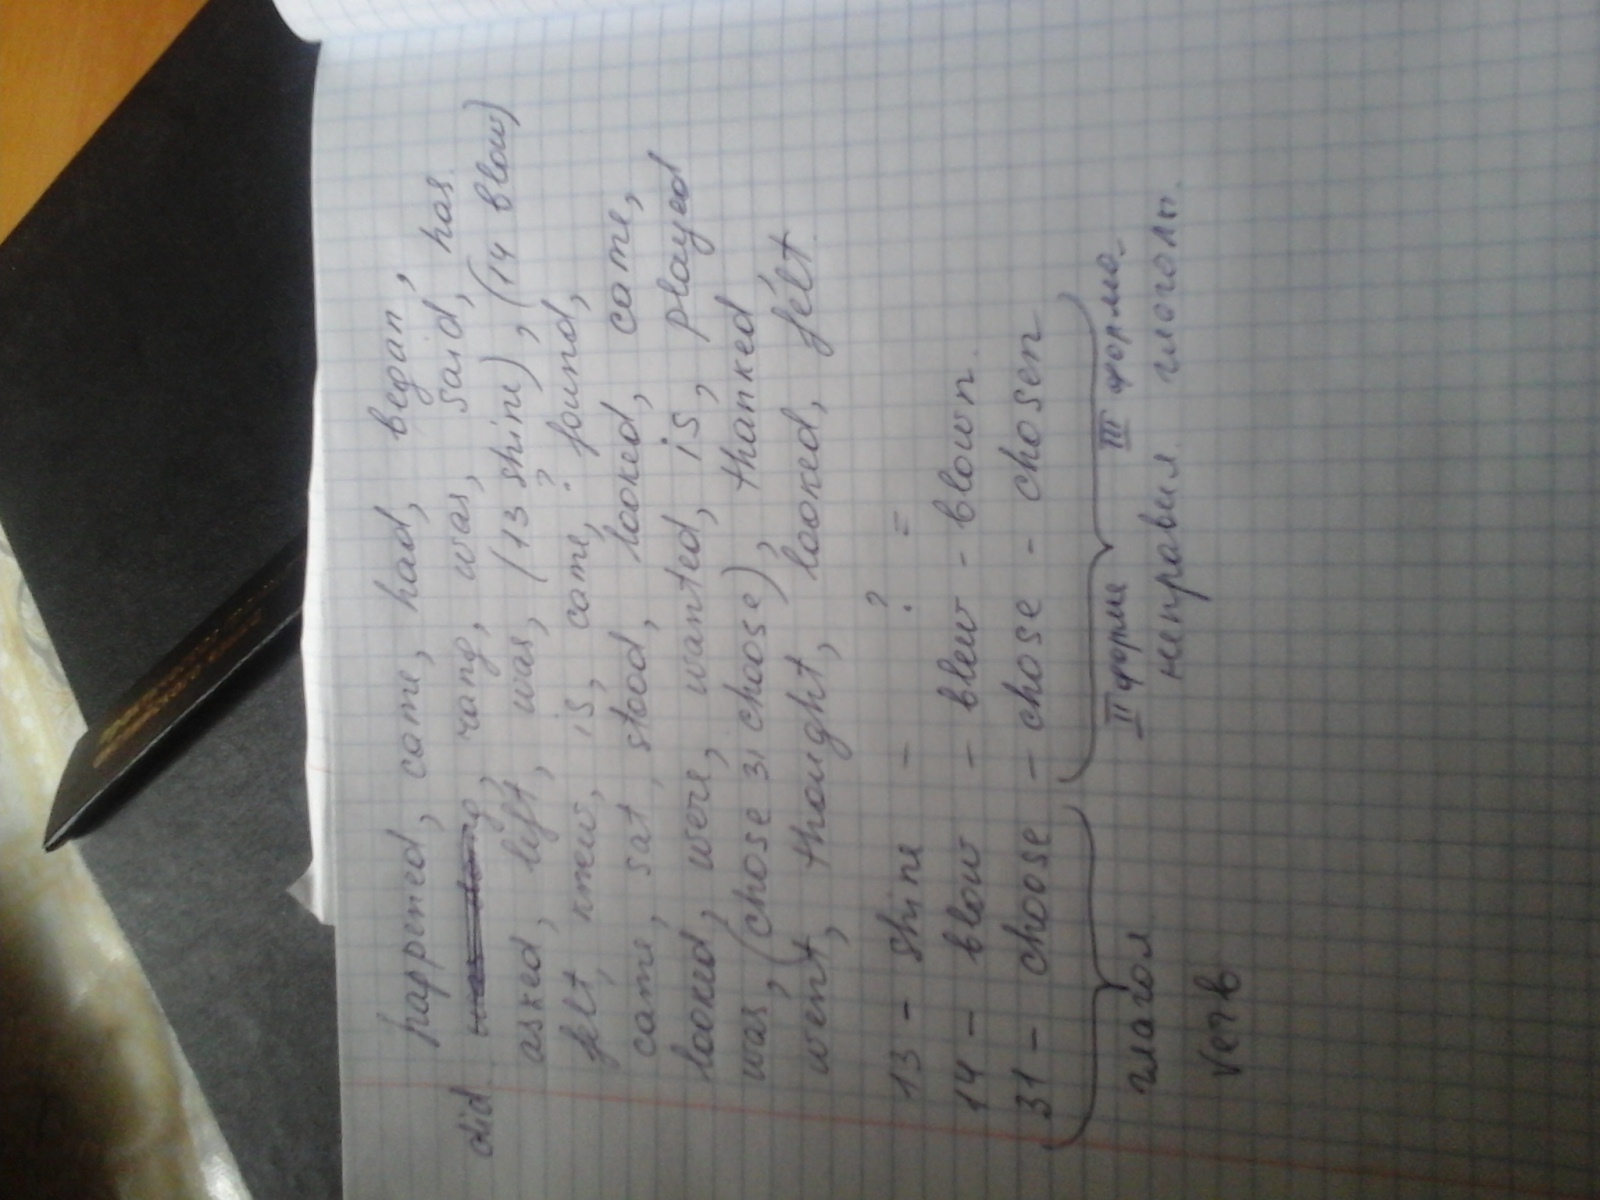 happened, came, had, began,
did , rang, was, said, has
asked, left, was, (13 shine), (14 blow)
felt, knew, is, came, ? found,
came, sat, stood, looked, came,
looked, were, wanted, is, played
was, (chose 31 choose), thanked,
went, thought, looked, felt.
13 - shine - ? =
14 - blow - blew - blown.
31 - choose - chose - chosen
глагол II форма III форма
Verb неправил глаголы.